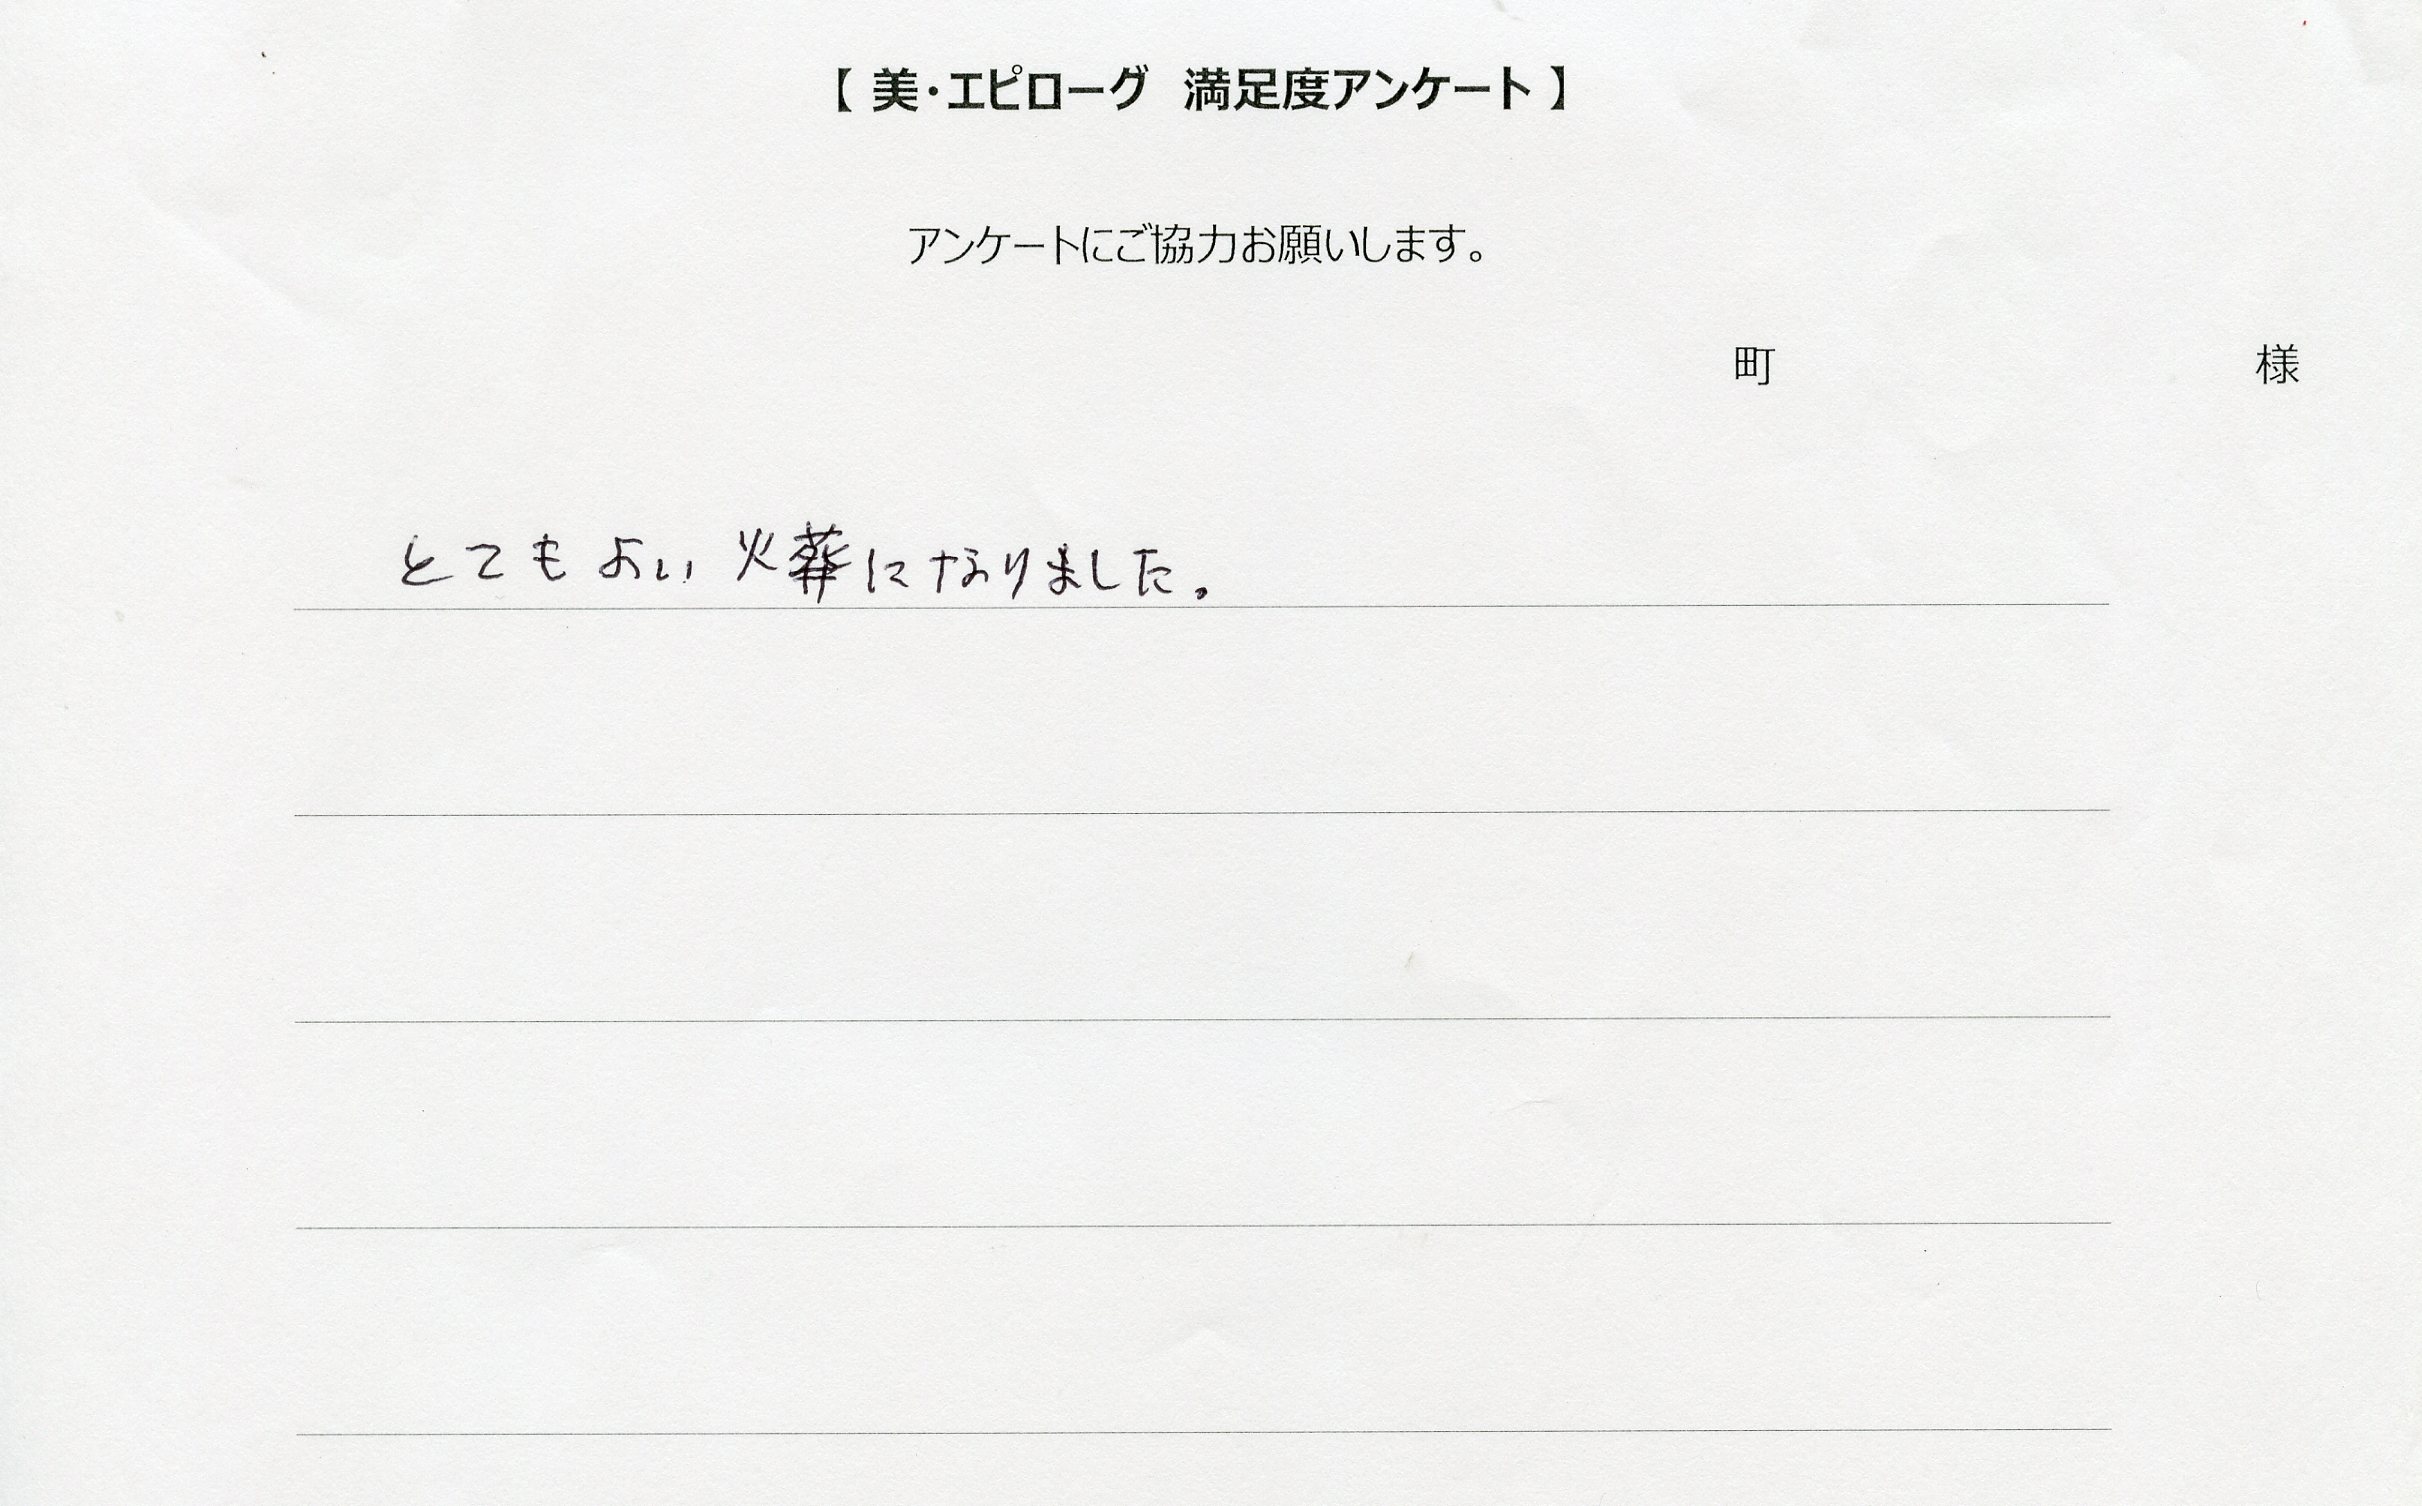 【 美・エピローグ 満足度アンケート 】
アンケートにご協力お願いします。
町 様
とてもよい火葬になりました。